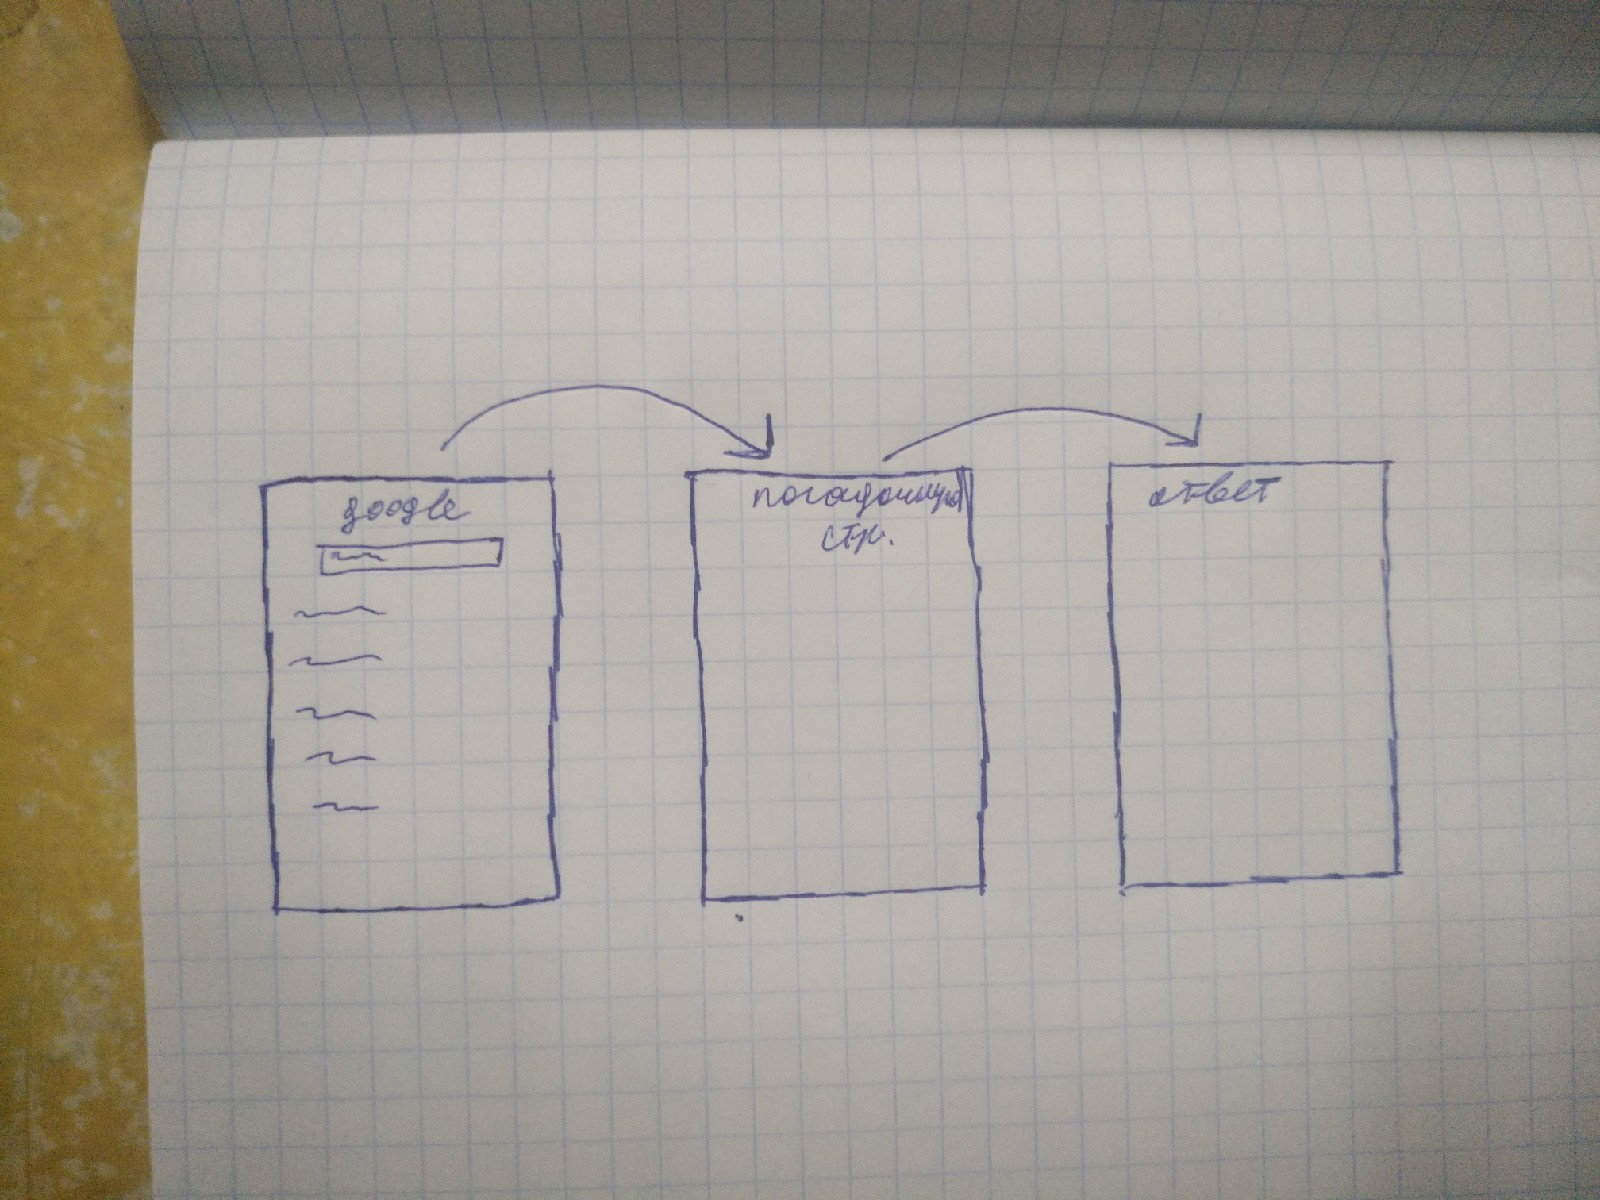 google
посадочная
стр.
ответ